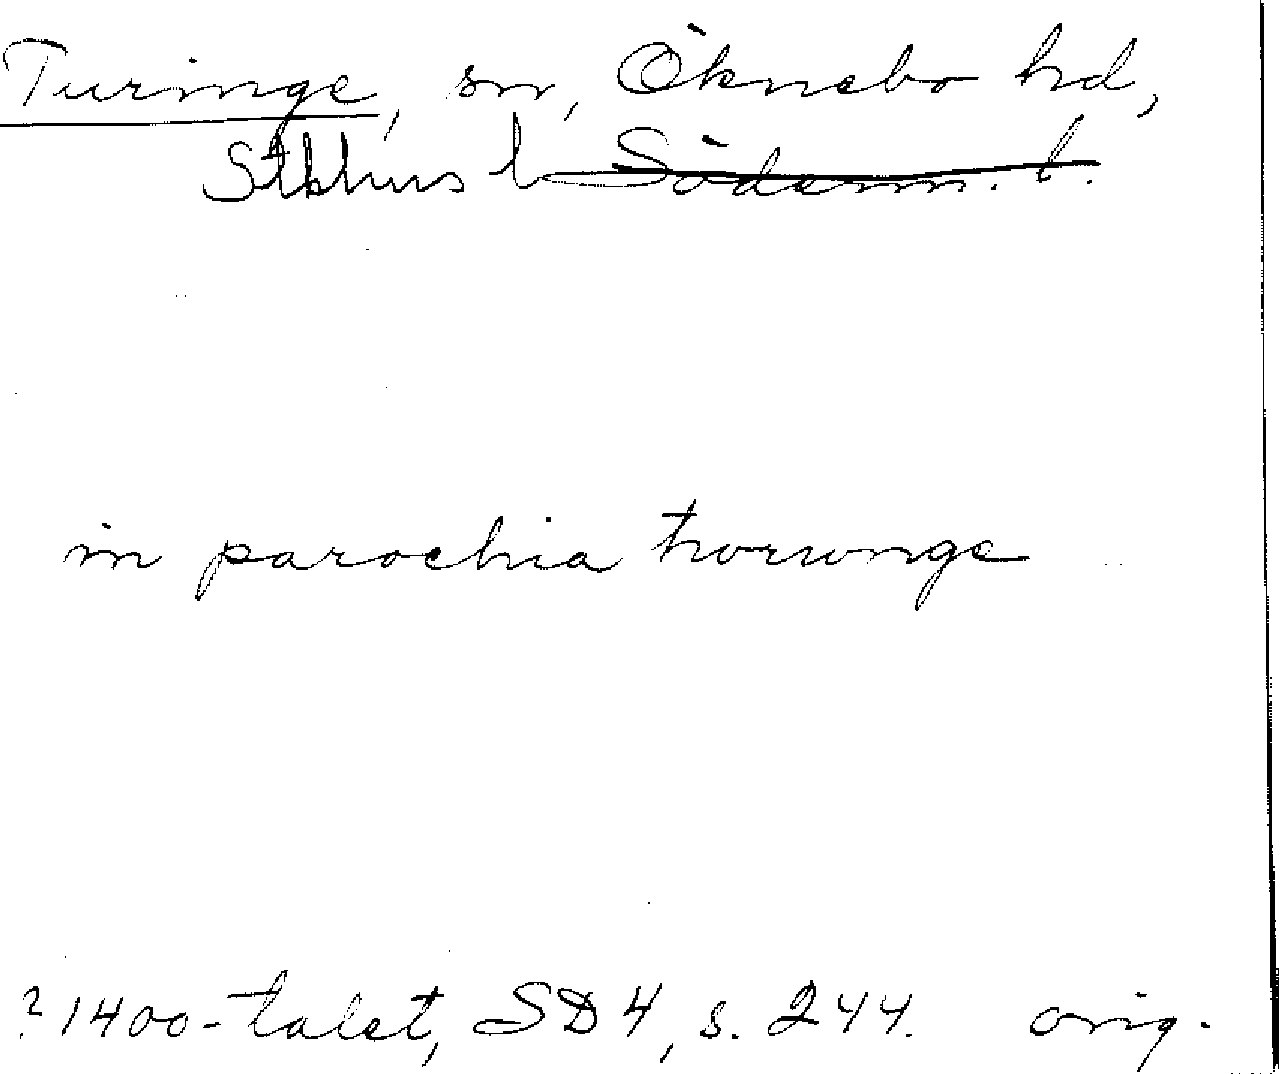 Turinge, sn, Öknebo hd,
Stkhms l ~~Söderm. l.~~
in parochia thorunge
? 1400-talet, SD 4, s. 244. orig.